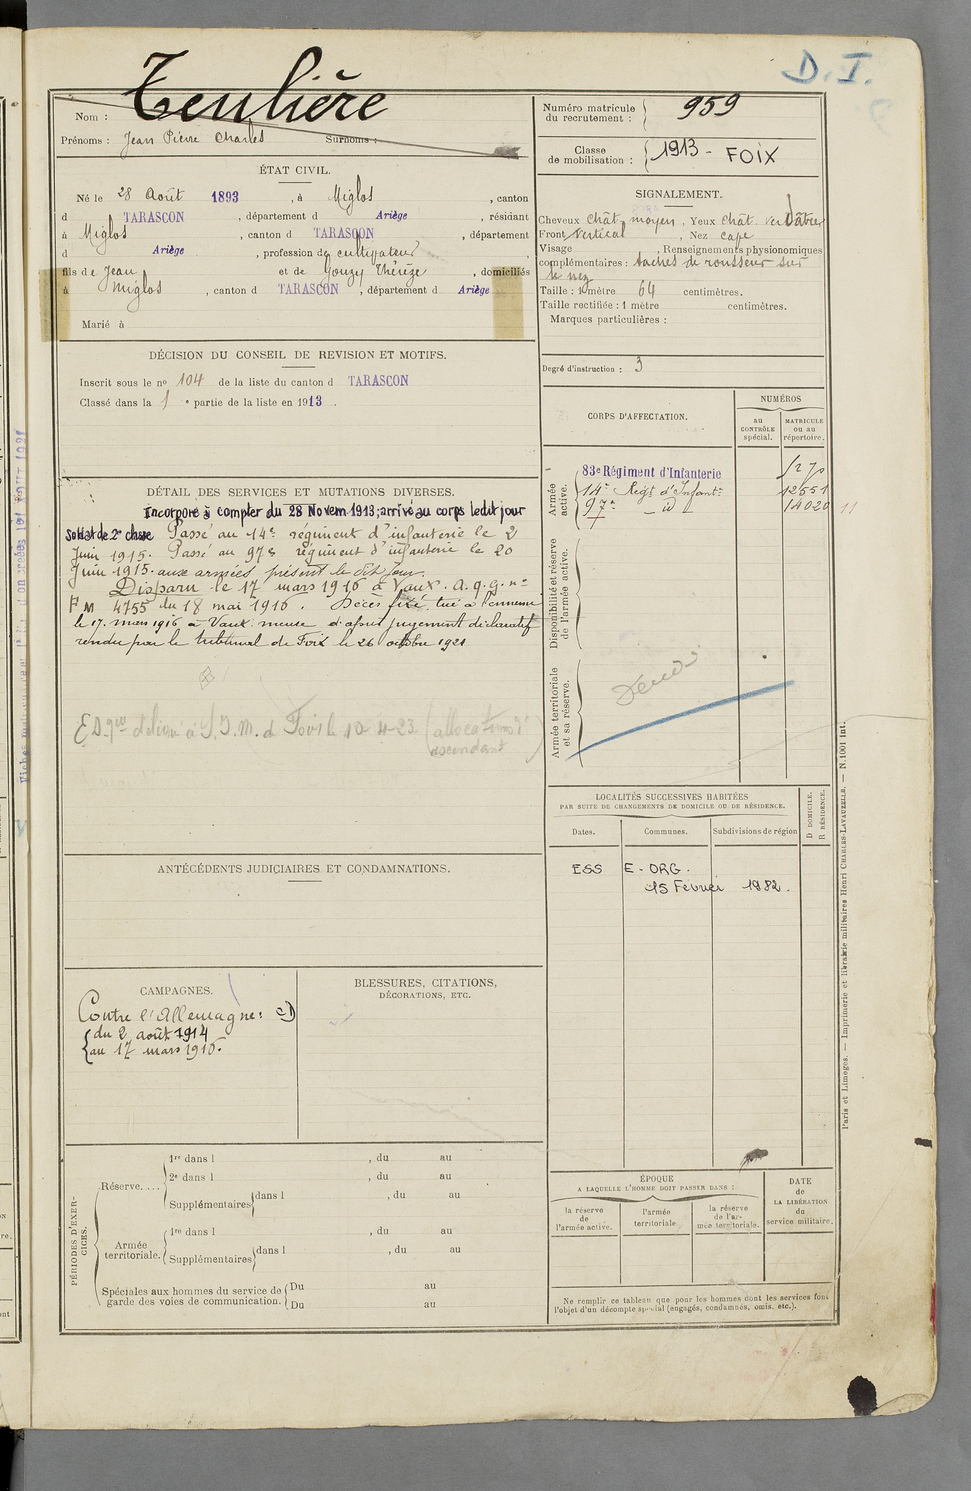 D. I.
Nom : Teulière
Prénoms : Jean Pierre Charles Surnoms :
Numéro matricule du recrutement : 959
Classe de mobilisation : 1913 - FOIX
ÉTAT CIVIL.
Né le 28 Août 1893, à Miglos, canton
d TARASCON, département d Ariège, résidant
à Miglos, canton d TARASCON, département
d Ariège, profession de cultivateur,
fils de Jean et de Gouzy Thérèze, domiciliés
à Miglos, canton d TARASCON, département d Ariège
Marié à
SIGNALEMENT.
Cheveux chât. moyen, Yeux chât. verdâtres
Front vertical, Nez cave
Visage , Renseignements physionomiques
complémentaires : taches de rousseur sur
le nez
Taille : 1 mètre 64 centimètres.
Taille rectifiée : 1 mètre centimètres.
Marques particulières :
Degré d'instruction : 3
DÉCISION DU CONSEIL DE REVISION ET MOTIFS.
Inscrit sous le nº 104 de la liste du canton d TARASCON
Classé dans la 1 e partie de la liste en 1913.
CORPS D'AFFECTATION.
NUMÉROS
au CONTRÔLE spécial.
MATRICULE ou au répertoire.
Armée active.
83e Régiment d'Infanterie
14e Régt d'Infant. 12551
97e id 14020
Disponibilité et réserve de l'armée active.
Armée territoriale et sa réserve.
DÉTAIL DES SERVICES ET MUTATIONS DIVERSES.
Incorporé à compter du 28 Novem 1913; arrivé au corps ledit jour
Soldat de 2e classe Passé au 14e régiment d'infanterie le 2
Juin 1915. Passé au 97e régiment d'infanterie le 20
Juin 1915. aux armées présent le dit jour.
Disparu le 17 mars 1916 à Vaux. A.q.G. nº
FM 4755 du 18 mai 1916. Décès fixé, tué à l'ennemi
le 17 mars 1916 à Vaux meuse d'après jugement déclaratif
rendu par le tribunal de Foix le 26 octobre 1921
délivré à S.I.M. d Foix le 10-4-23 (allocations d'
ascendant)
LOCALITÉS SUCCESSIVES HABITÉES
PAR SUITE DE CHANGEMENTS DE DOMICILE OU DE RÉSIDENCE.
Dates. Communes. Subdivisions de région
D DOMICILE.
R RÉSIDENCE.
ESS E-ORG.
15 Février 1982.
ANTÉCÉDENTS JUDICIAIRES ET CONDAMNATIONS.
CAMPAGNES.
Contre l'Allemagne: CD
du 2 août 1914
au 17 mars 1916.
BLESSURES, CITATIONS,
DÉCORATIONS, ETC.
PÉRIODES D'EXERCICES.
Réserve.... 1re dans l , du au
2e dans l , du au
Supplémentaires dans l , du au
Armée territoriale. 1re dans l , du au
Supplémentaires dans l , du au
Spéciales aux hommes du service de garde des voies de communication. Du au
Du au
ÉPOQUE
A LAQUELLE L'HOMME DOIT PASSER DANS :
la réserve de l'armée active.
l'armée territoriale.
la réserve de l'armée territoriale.
DATE de LA LIBÉRATION du service militaire.
Ne remplir ce tableau que pour les hommes dont les services font
l'objet d'un décompte spécial (engagés, condamnés, omis, etc.).
Paris et Limoges. — Imprimerie et librairie militaires Henri CHARLES-LAVAUZELLE. — N. 1001 int.